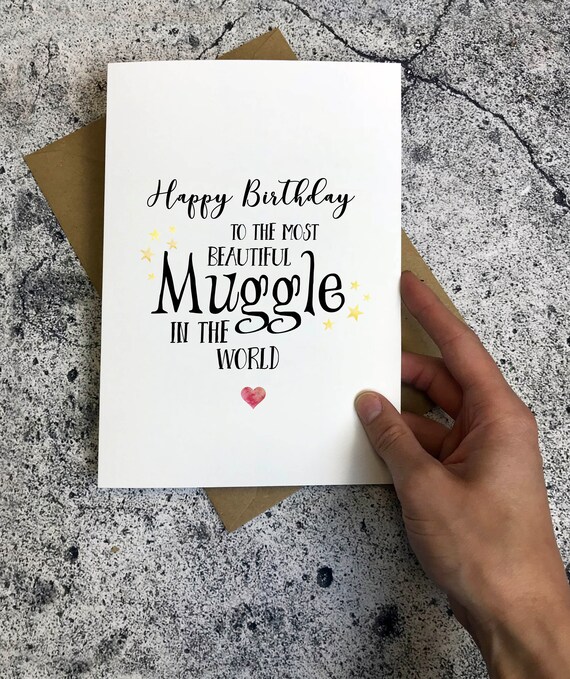 Happy Birthday
TO THE MOST
BEAUTIFUL
Muggle
IN THE
WORLD